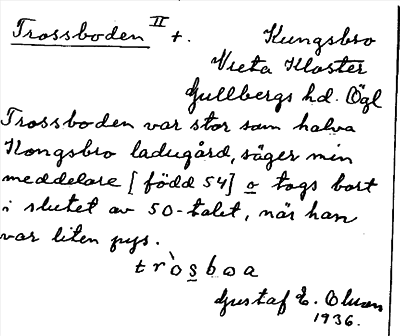 Trossboden II +. Kungsbro
Vreta Kloster
Gullbergs hd. Ögl
Trossboden var stor som halva
Kongsbro ladugård, säger min
meddelare [född 54] o togs bort
i slutet av 50-talet, när han
var liten pys.
tròsboa
Gustaf E. Olsson
1936.